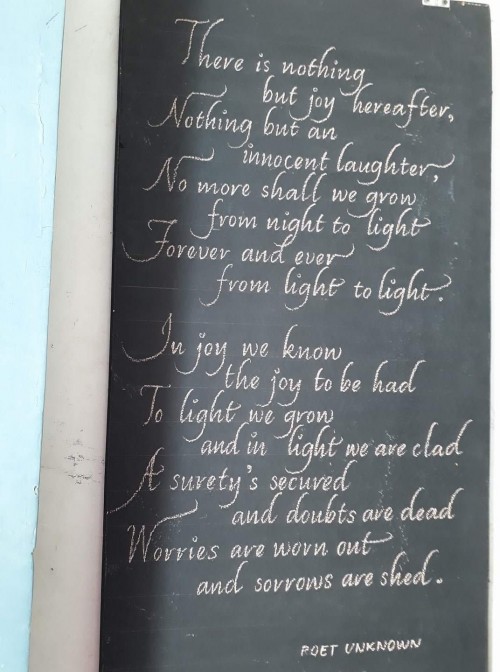 There is nothing
but joy hereafter,
Nothing but an
innocent laughter,
No more shall we grow
from night to light
Forever and ever
from light to light.
In joy we know
the joy to be had
To light we grow
and in light we are clad
A surety's secured
and doubts are dead
Worries are worn out
and sorrows are shed.
POET UNKNOWN